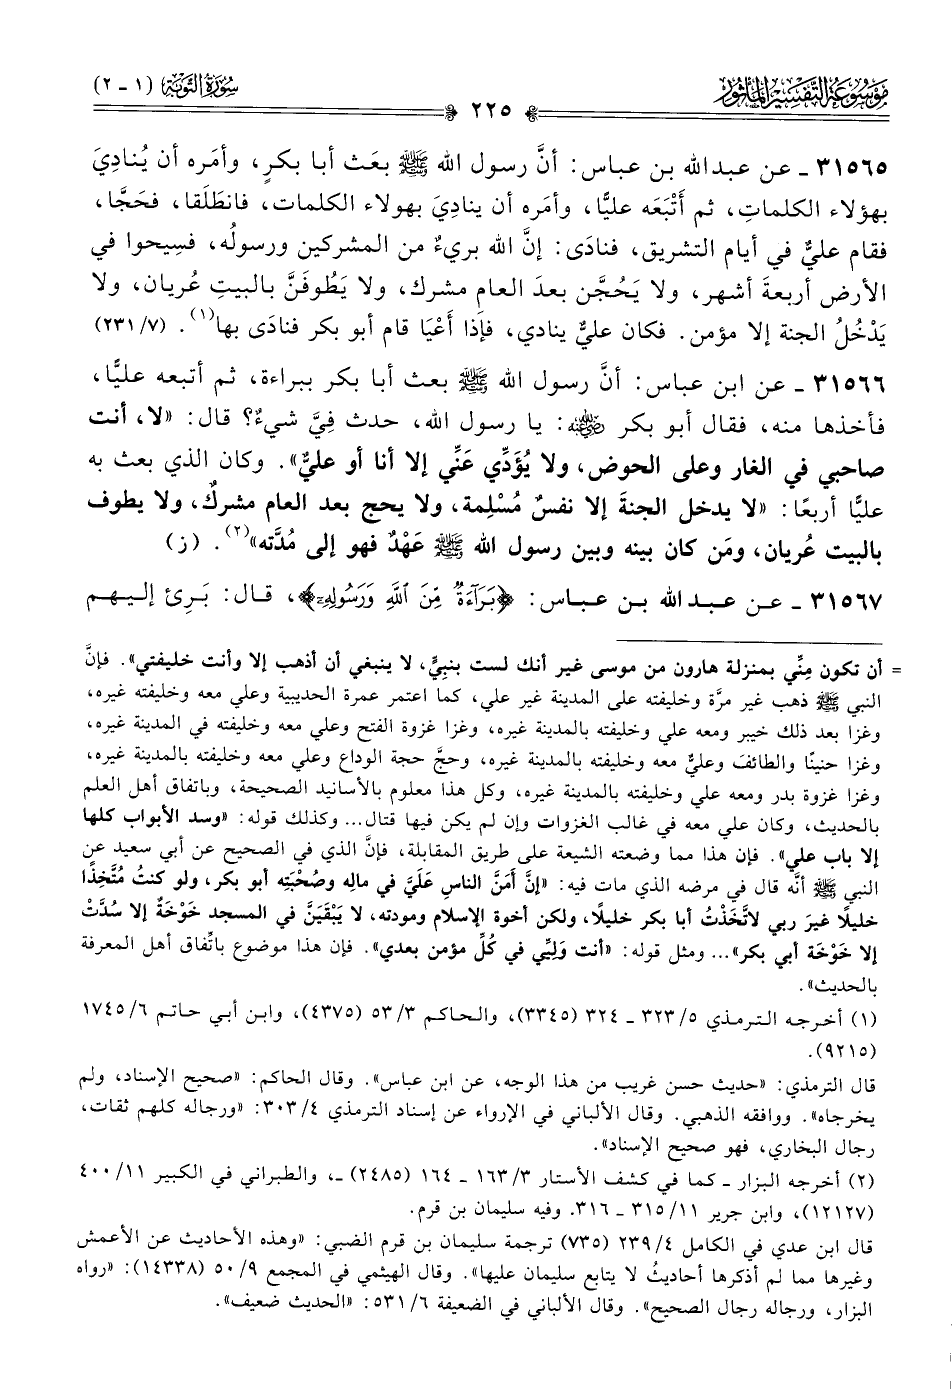 موسوعة التفسير المأثور
سورة التوبة (١ - ٢)
٢٢٥
٣١٥٦٥ ـ عن عبدالله بن عباس: أنَّ رسول الله ﷺ بعَث أبا بكرٍ، وأمَره أن يُنادِيَ
بهؤلاء الكلماتِ، ثم أَتْبَعَه عليًّا، وأمَره أن ينادِيَ بهولاء الكلمات، فانطَلَقا، فحَجَّا،
فقام عليٌّ في أيام التشريق، فنادَى: إنَّ الله بريءٌ من المشركين ورسولُه، فسِيحوا في
الأرض أربعةَ أشهر، ولا يَحُجَّن بعدَ العام مشرك، ولا يَطُوفَنَّ بالبيتِ عُريان، ولا
يَدْخُلُ الجنة إلا مؤمن. فكان عليٌّ ينادي، فإذا أَعْيَا قام أبو بكر فنادَى بها(١). (٧/ ٢٣١)
٣١٥٦٦ ـ عن ابن عباس: أنَّ رسول الله ﷺ بعث أبا بكر ببراءة، ثم أتبعه عليًّا،
فأخذها منه، فقال أبو بكر رضي الله عنه: يا رسول الله، حدث فِيَّ شيءٌ؟ قال: «لا، أنت
صاحبي في الغار وعلى الحوض، ولا يُؤَدِّي عَنِّي إلا أنا أو عليٌّ». وكان الذي بعث به
عليًّا أربعًا: «لا يدخل الجنةَ إلا نفسٌ مُسْلِمة، ولا يحج بعد العام مشركٌ، ولا يطوف
بالبيت عُريان، ومَن كان بينه وبين رسول الله ﷺ عَهْدٌ فهو إلى مُدَّته»(٢). (ز)
٣١٥٦٧ ـ عن عبدالله بن عباس: ﴿بَرَآءَةٌ مِّنَ ٱللَّهِ وَرَسُولِهِۦٓ﴾، قال: بَرِئ إليهم
= أن تكون مِنِّي بمنزلة هارون من موسى غير أنك لست بنبِيٍّ، لا ينبغي أن أذهب إلا وأنت خليفتي». فإنَّ
النبي ﷺ ذهب غير مرَّة وخليفته على المدينة غير علي، كما اعتمر عمرة الحديبية وعلي معه وخليفته غيره،
وغزا بعد ذلك خيبر ومعه علي وخليفته بالمدينة غيره، وغزا غزوة الفتح وعلي معه وخليفته في المدينة غيره،
وغزا حنينًا والطائف وعليٌّ معه وخليفته بالمدينة غيره، وحجَّ حجة الوداع وعلي معه وخليفته بالمدينة غيره،
وغزا غزوة بدر ومعه علي وخليفته بالمدينة غيره، وكل هذا معلوم بالأسانيد الصحيحة، وباتفاق أهل العلم
بالحديث، وكان علي معه في غالب الغزوات وإن لم يكن فيها قتال... وكذلك قوله: «وسد الأبواب كلها
إلا باب علي». فإن هذا مما وضعته الشيعة على طريق المقابلة، فإنَّ الذي في الصحيح عن أبي سعيد عن
النبي ﷺ أنَّه قال في مرضه الذي مات فيه: «إنَّ أمَنَّ الناسِ عَلَيَّ في مالِه وصُحْبَتِه أبو بكر، ولو كنتُ مُتَّخِذًا
خليلًا غيرَ ربي لاتَّخَذْتُ أبا بكر خليلًا، ولكن أخوة الإسلام ومودته، لا يَبْقَيَنَّ في المسجد خَوْخَةٌ إلا سُدَّتْ
إلا خَوْخَة أبي بكر»... ومثل قوله: «أنت وَلِيِّي في كُلِّ مؤمن بعدي». فإن هذا موضوع باتِّفاق أهل المعرفة
بالحديث».
(١) أخرجه الترمذي ٥/ ٣٢٣ ـ ٣٢٤ (٣٣٤٥)، والحاكم ٣/ ٥٣ (٤٣٧٥)، وابن أبي حاتم ٦/ ١٧٤٥
(٩٢١٥).
قال الترمذي: «حديث حسن غريب من هذا الوجه، عن ابن عباس». وقال الحاكم: «صحيح الإسناد، ولم
يخرجاه». ووافقه الذهبي. وقال الألباني في الإرواء عن إسناد الترمذي ٤/ ٣٠٣: «ورجاله كلهم ثقات،
رجال البخاري، فهو صحيح الإسناد».
(٢) أخرجه البزار ـ كما في كشف الأستار ٣/ ١٦٣ ـ ١٦٤ (٢٤٨٥) ـ، والطبراني في الكبير ١١/ ٤٠٠
(١٢١٢٧)، وابن جرير ١١/ ٣١٥ ـ ٣١٦. وفيه سليمان بن قرم.
قال ابن عدي في الكامل ٤/ ٢٣٩ (٧٣٥) ترجمة سليمان بن قرم الضبي: «وهذه الأحاديث عن الأعمش
وغيرها مما لم أذكرها أحاديثُ لا يتابع سليمان عليها». وقال الهيثمي في المجمع ٩/ ٥٠ (١٤٣٣٨): «رواه
البزار، ورجاله رجال الصحيح». وقال الألباني في الضعيفة ٦/ ٥٣١: «الحديث ضعيف».